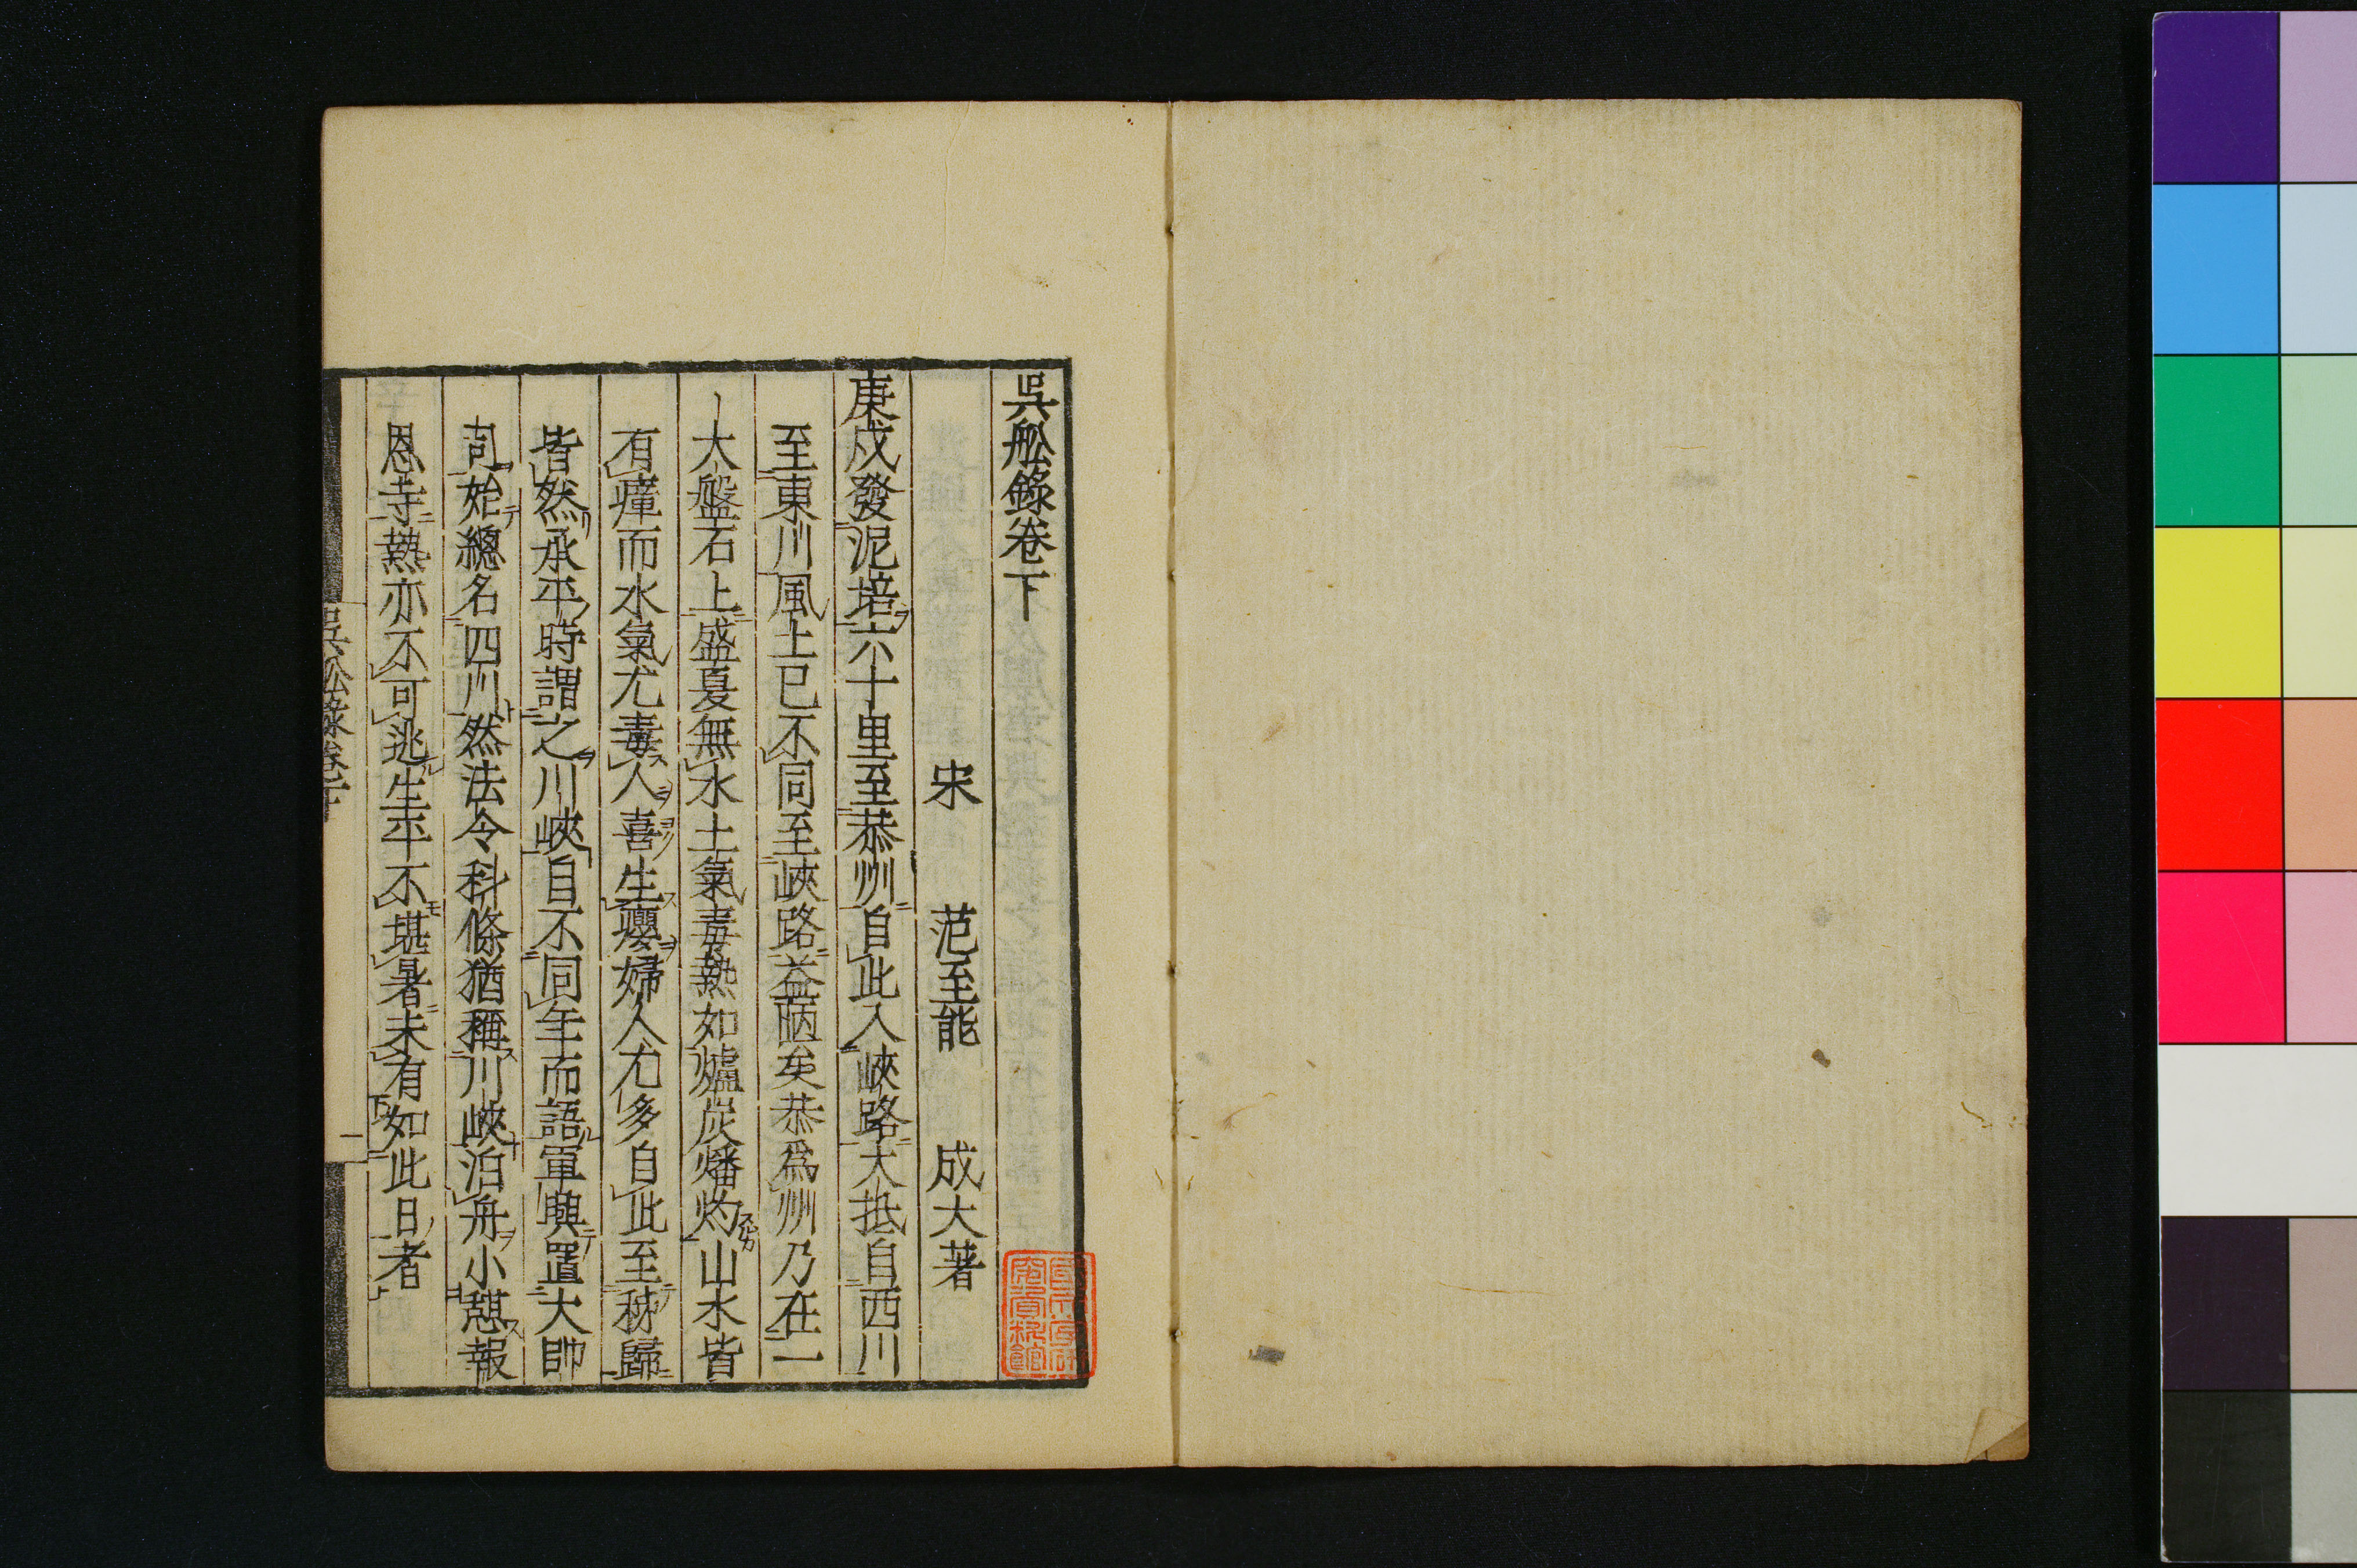 吳舩錄卷下
宋 范至能 成大著
庚戌發泥培六十里至恭州自此入峽路大抵自西川
至東川風土已不同至峽路益陋矣恭爲州乃在一
大盤石上盛夏無水土氣毒熱如爐炭燔灼山水皆
有瘴而水氣尤毒人喜生癭婦人尤多自此至秭歸
皆然承平時謂之川峽自不同年而語軍興置大帥
司始總名四川然法令科條猶稱川峽泊舟小憩報
恩寺熱亦不可逃生平不堪暑未有如此日者
吳舩錄卷下
一